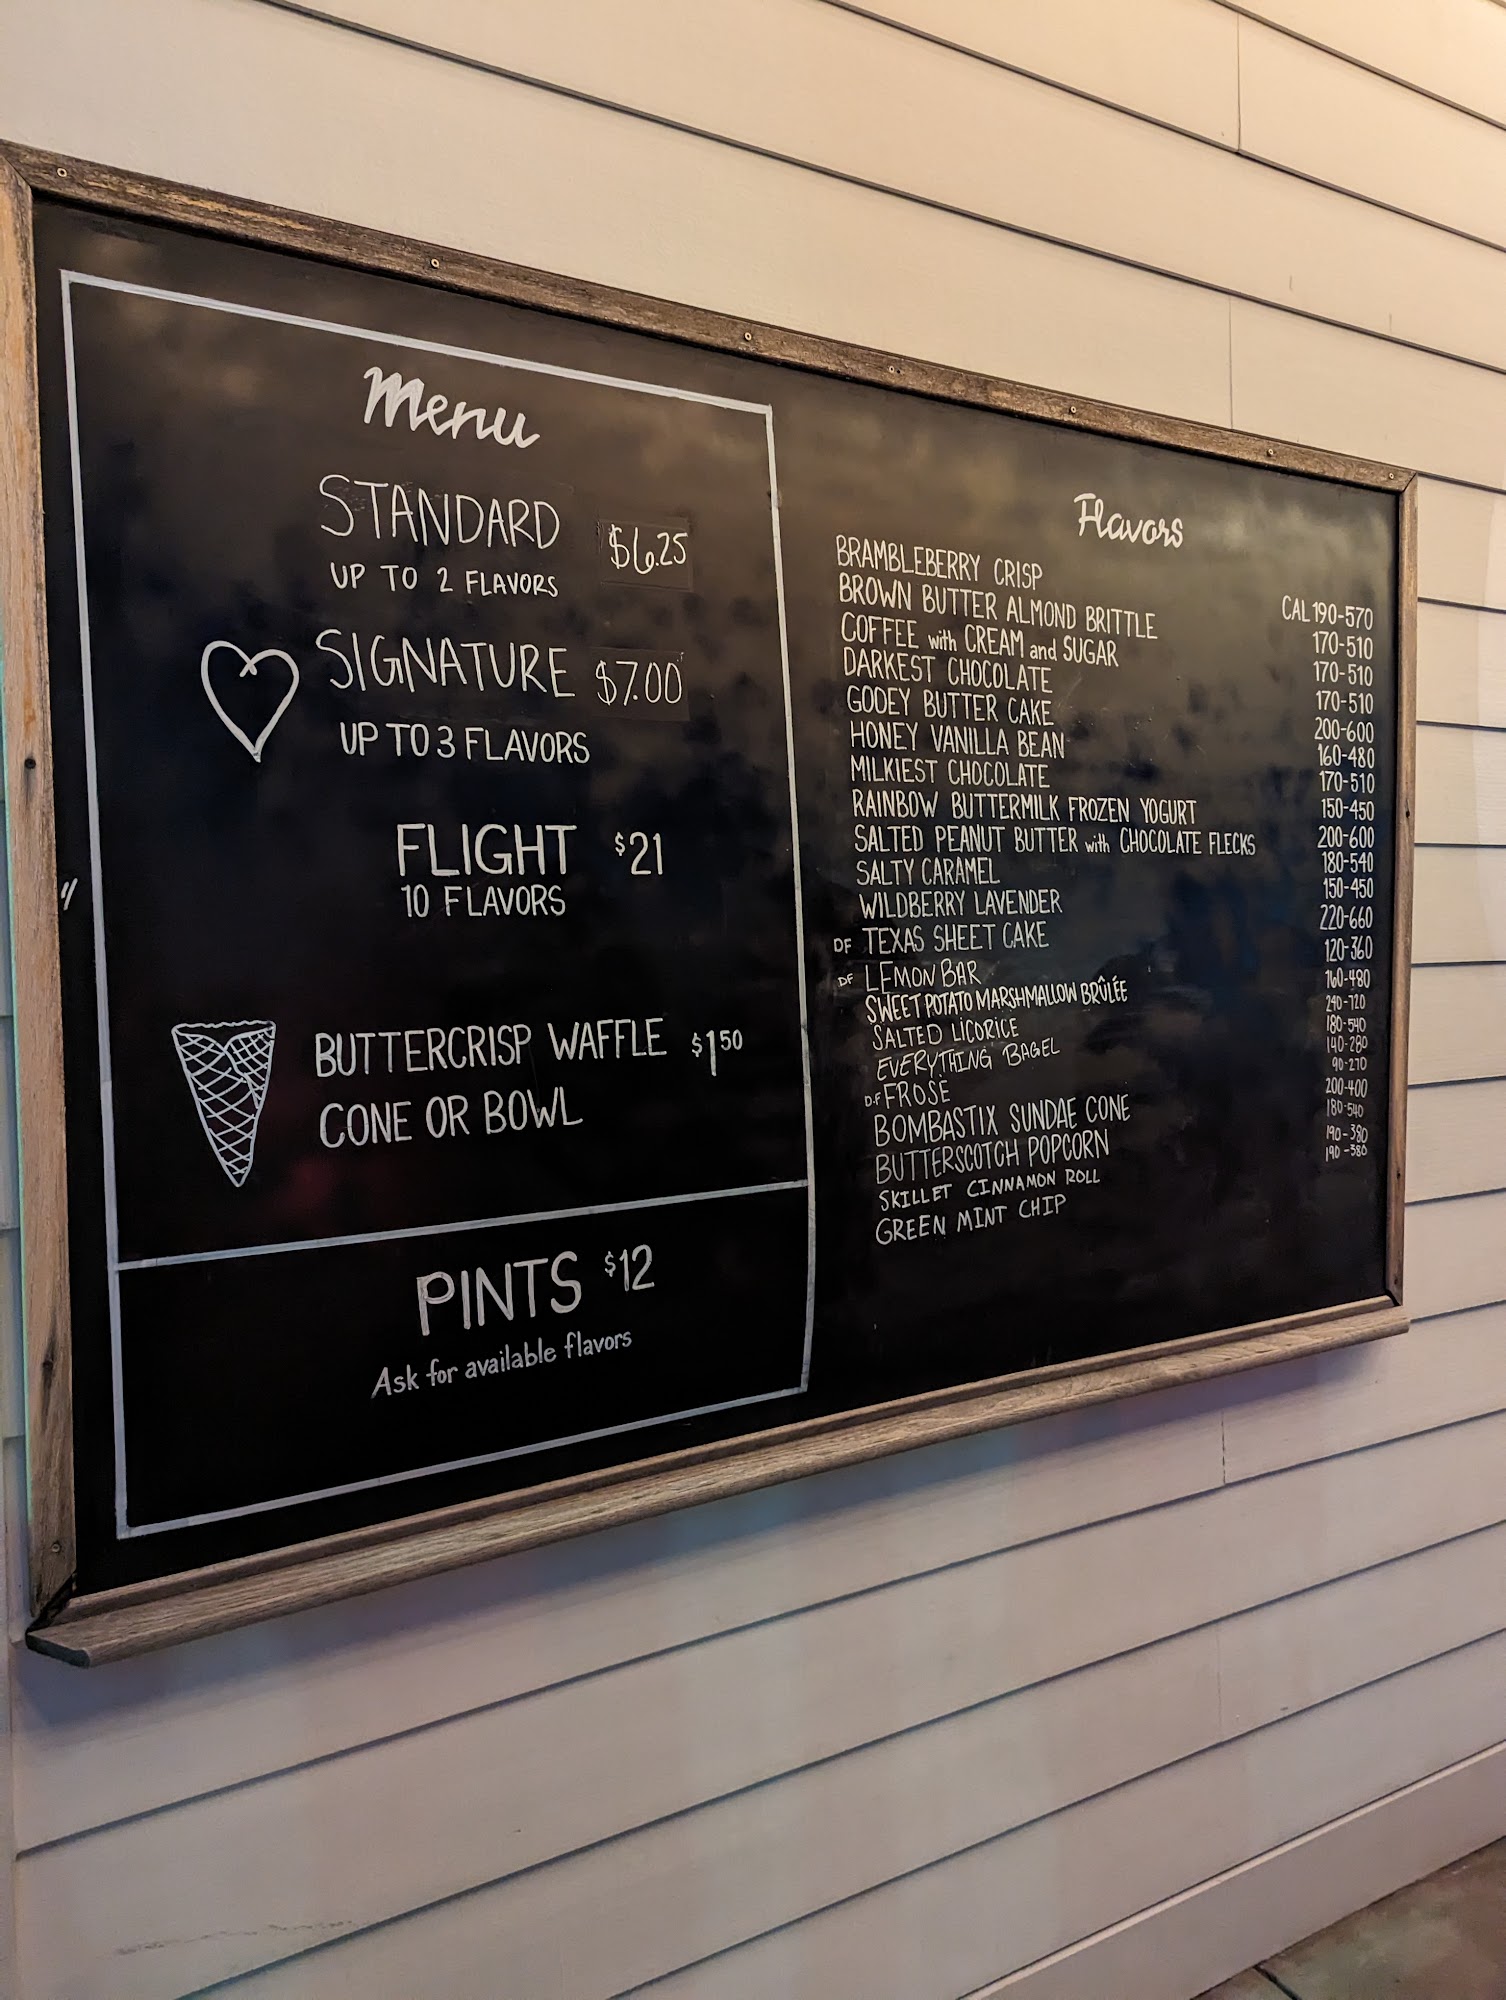 Menu
STANDARD $6.25
UP TO 2 FLAVORS
SIGNATURE $7.00
UP TO 3 FLAVORS
FLIGHT $21
10 FLAVORS
BUTTERCRISP WAFFLE $1.50
CONE OR BOWL
PINTS $12
Ask for available flavors
Flavors
BRAMBLEBERRY CRISP CAL 190-570
BROWN BUTTER ALMOND BRITTLE 170-510
COFFEE with CREAM and SUGAR 170-510
DARKEST CHOCOLATE 170-510
GOOEY BUTTER CAKE 200-600
HONEY VANILLA BEAN 160-480
MILKIEST CHOCOLATE 170-510
RAINBOW BUTTERMILK FROZEN YOGURT 150-450
SALTED PEANUT BUTTER with CHOCOLATE FLECKS 200-600
SALTY CARAMEL 180-540
WILDBERRY LAVENDER 150-450
DF TEXAS SHEET CAKE 220-660
DF LEMON BAR 120-360
SWEET POTATO MARSHMALLOW BRÛLÉE 160-480
SALTED LICORICE 240-720
EVERYTHING BAGEL 180-540
DF FROSÉ 140-280
BOMBASTIX SUNDAE CONE 90-270
BUTTERSCOTCH POPCORN 200-400
SKILLET CINNAMON ROLL 180-540
GREEN MINT CHIP 190-380
190-380